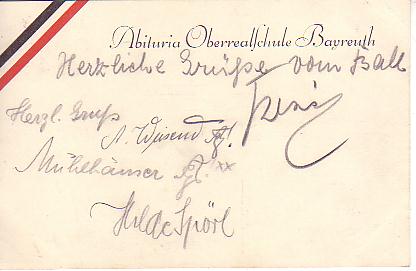 Abituria Oberrealschule Bayreuth
Herzliche Grüße vom Ball
Herzl. Gruß
A. Weisend
Mühlhäuser xx
Hilde Spörl